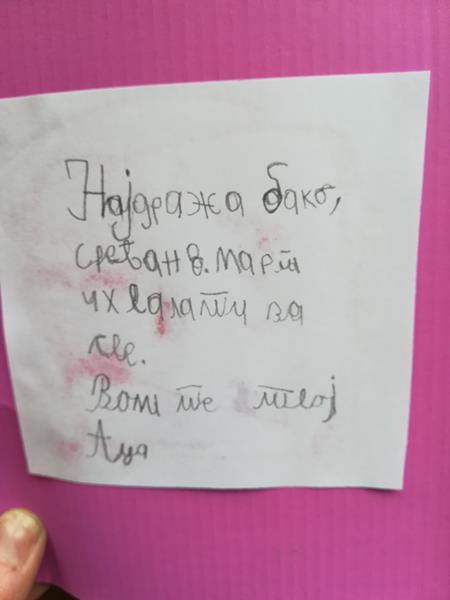 Најдража бако,
срећан 8. март
и хвала ти за
све.
Воли те твој
Аца